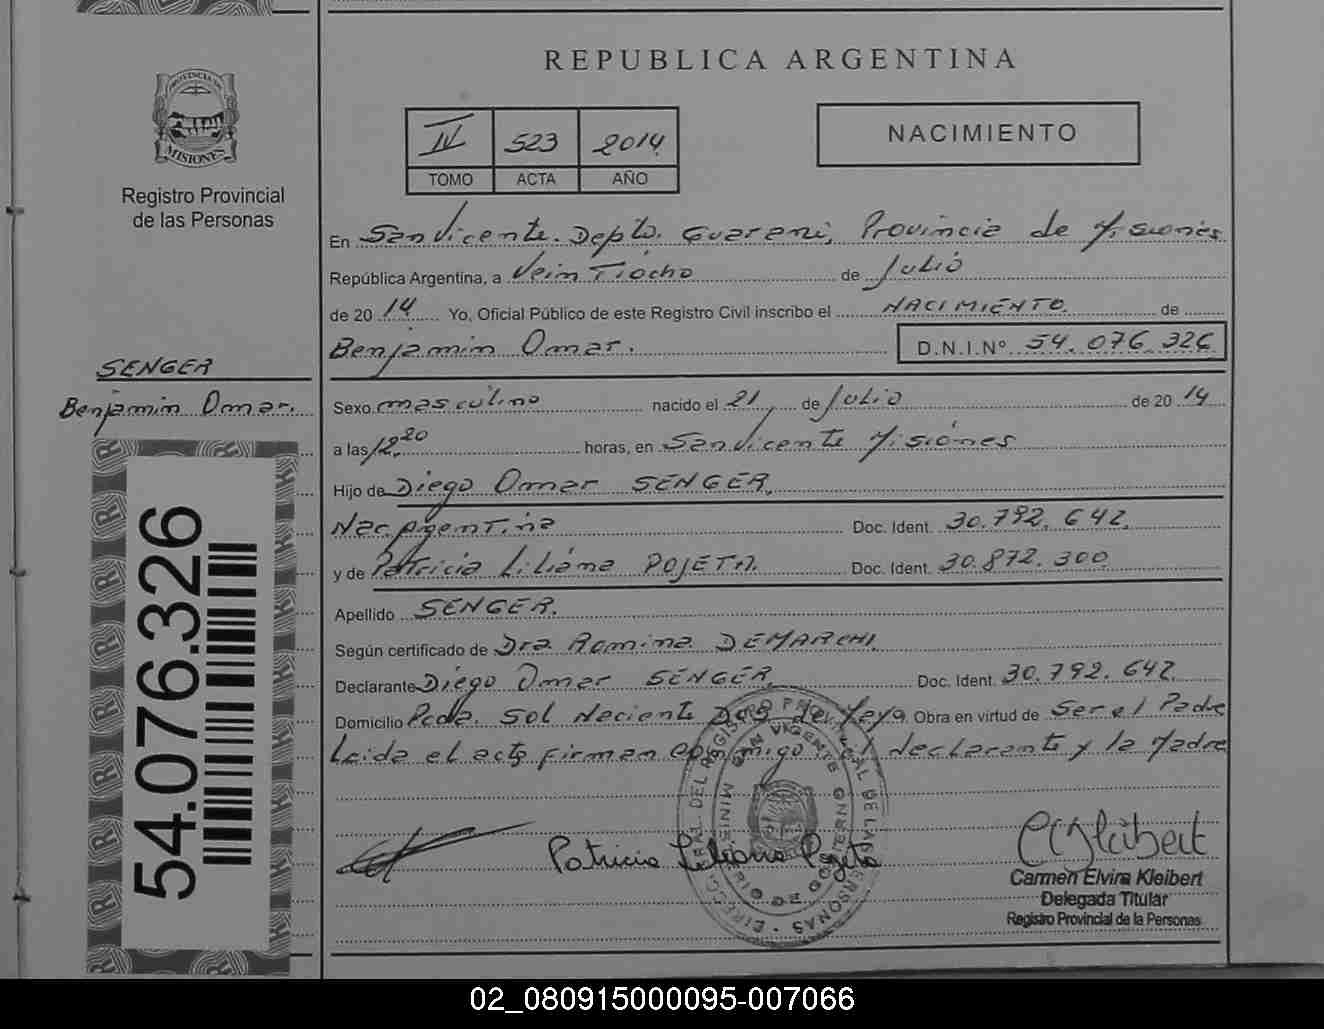 REPUBLICA ARGENTINA
PROVINCIA DE
MISIONES
Registro Provincial
de las Personas
IV 523 2014
TOMO ACTA AÑO
NACIMIENTO
En San Vicente. Depto. Guarani, Provincia de Misiones
República Argentina, a Veintiocho de Julio
de 2014 Yo, Oficial Público de este Registro Civil inscribo el NACIMIENTO. de
Benjamin Omar. D.N.I.Nº 54.076.326
SENGER
Benjamin Omar.
Sexo masculino nacido el 21 de Julio de 2014
a las 12.20 horas, en San Vicente Misiones
Hijo de Diego Omar SENGER.
Nac. Argentina Doc. Ident. 30.792.642.
y de Patricia Liliana POJETA. Doc. Ident. 30.872.300
Apellido SENGER.
Según certificado de Dra. Romina DEMARCHI.
Declarante Diego Omar SENGER. Doc. Ident. 30.792.642.
Domicilio Pcda. Sol Naciente Dos de Mayo Obra en virtud de Ser el Padre
Leida el acta firman conmigo declarante y la Madre
54.076.326
Patricia Liliana Pojeta
Carmen Elvira Kleibert
Delegada Titular
Registro Provincial de la Personas
02_080915000095-007066